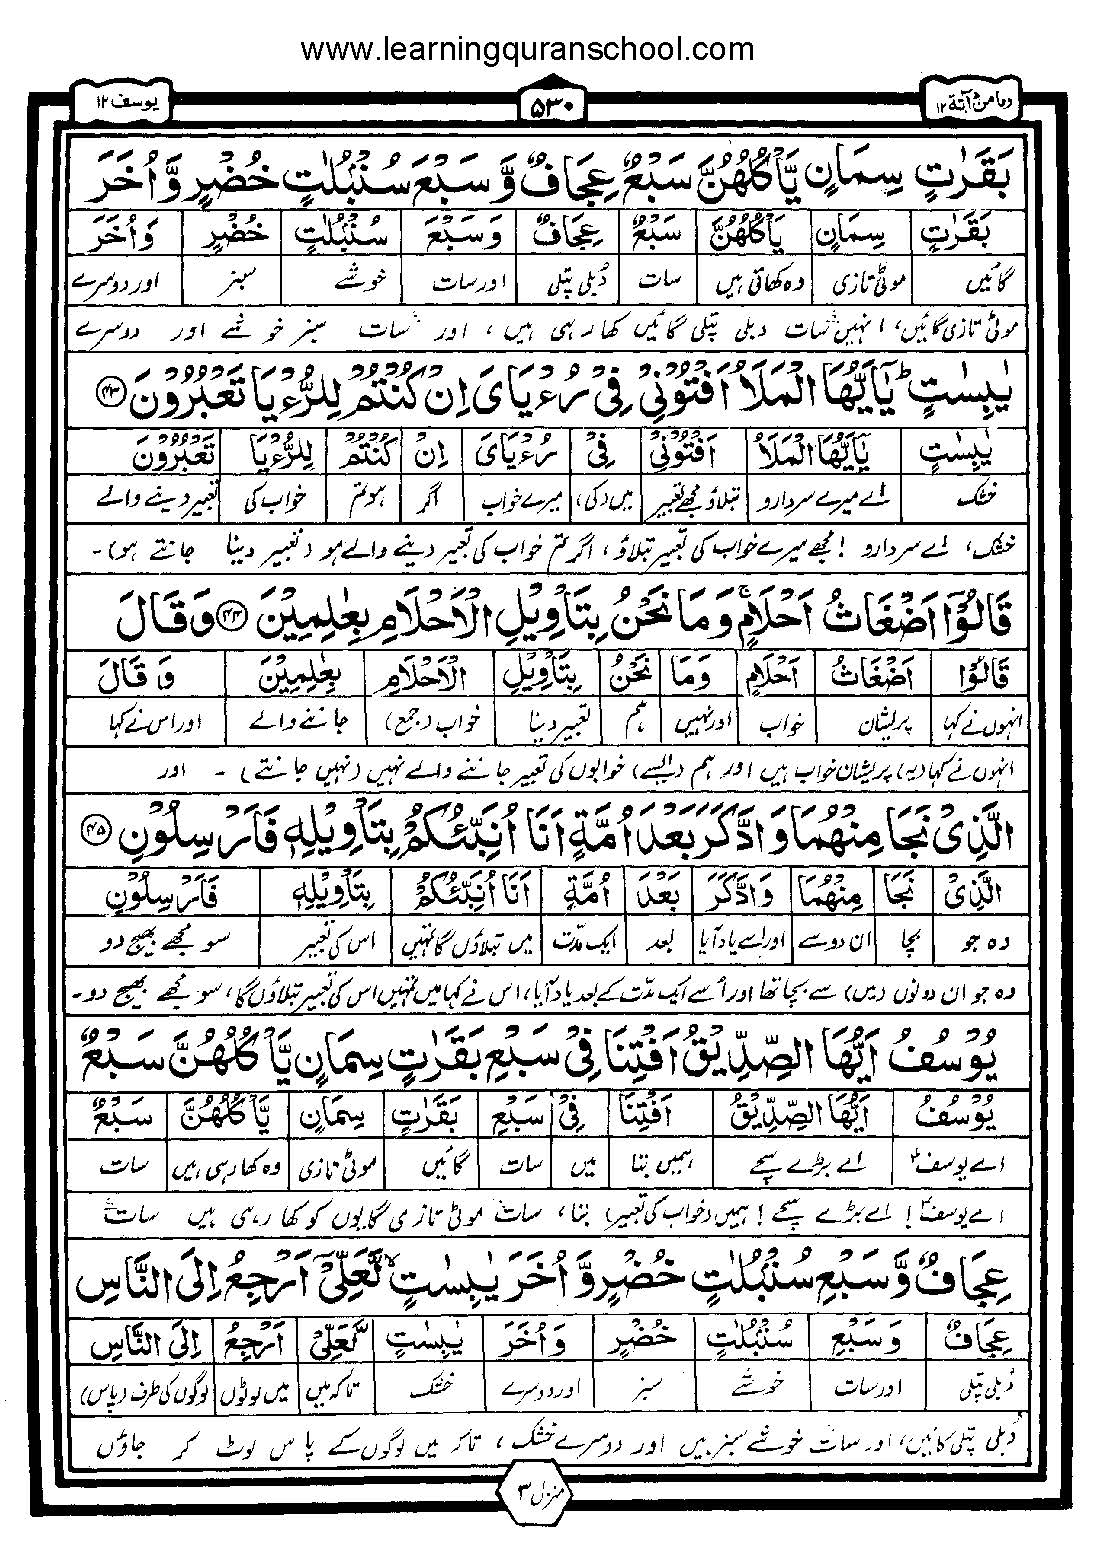 www.learningquranschool.com
یوسف ۱۲
۵۳۰
وما من دآبۃ ۱۲
بَقَرٰتٍ سِمَانٍ یَّاْكُلُهُنَّ سَبْعٌ عِجَافٌ وَّ سَبْعَ سُنْۢبُلٰتٍ خُضْرٍ وَّ اُخَرَ
بَقَرٰتٍ سِمَانٍ یَاْكُلُهُنَّ سَبْعٌ عِجَافٌ وَسَبْعَ سُنْۢبُلٰتٍ خُضْرٍ وَاُخَرَ
گائیں موٹی تازی وہ کھاتی ہیں سات دُبلی پتلی اور سات خوشے سبز اور دوسرے
موٹی تازی گائیں، انہیں سات دبلی پتلی گائیں کھا رہی ہیں، اور سات سبز خوشے اور دوسرے
یٰبِسٰتٍ ؕ یٰۤاَیُّهَا الْمَلَاُ اَفْتُوْنِیْ فِیْ رُءْیَایَ اِنْ كُنْتُمْ لِلرُّءْیَا تَعْبُرُوْنَ ۴۳
یٰبِسٰتٍ یٰۤاَیُّهَا الْمَلَاُ اَفْتُوْنِیْ فِیْ رُءْیَایَ اِنْ كُنْتُمْ لِلرُّءْیَا تَعْبُرُوْنَ
خشک اے میرے سردارو بتلاؤ مجھے تعبیر میں (کی) میرے خواب اگر ہو تم خواب کی تعبیر دینے والے
خشک، اے سردارو! مجھے میرے خواب کی تعبیر بتلاؤ، اگر تم خواب کی تعبیر دینے والے ہو (تعبیر دینا جانتے ہو)۔
قَالُوْۤا اَضْغَاثُ اَحْلَامٍ ۚ وَ مَا نَحْنُ بِتَاْوِیْلِ الْاَحْلَامِ بِعٰلِمِیْنَ ۴۴ وَ قَالَ
قَالُوْا اَضْغَاثُ اَحْلَامٍ وَمَا نَحْنُ بِتَاْوِیْلِ الْاَحْلَامِ بِعٰلِمِیْنَ وَ قَالَ
انہوں نے کہا پریشان خواب اور نہیں ہم تعبیر دینا خواب (جمع) جاننے والے اور اس نے کہا
انہوں نے کہا (یہ) پریشان خواب ہیں اور ہم (ایسے) خوابوں کی تعبیر جاننے والے نہیں (نہیں جانتے)۔ اور
الَّذِیْ نَجَا مِنْهُمَا وَ ادَّكَرَ بَعْدَ اُمَّةٍ اَنَا اُنَبِّئُكُمْ بِتَاْوِیْلِهٖ فَاَرْسِلُوْنِ ۴۵
الَّذِیْ نَجَا مِنْهُمَا وَادَّكَرَ بَعْدَ اُمَّةٍ اَنَا اُنَبِّئُكُمْ بِتَاْوِیْلِهٖ فَاَرْسِلُوْنِ
وہ جو بچا ان دو سے اور اسے یاد آیا بعد ایک مدّت میں بتلاؤں گا تمہیں اس کی تعبیر سو مجھے بھیج دو
وہ جو ان دونوں (میں) سے بچا تھا اور اُسے ایک مدّت کے بعد یاد آیا، اس نے کہا میں تمہیں اس کی تعبیر بتلاؤں گا، سو مجھے بھیج دو۔
یُوْسُفُ اَیُّهَا الصِّدِّیْقُ اَفْتِنَا فِیْ سَبْعِ بَقَرٰتٍ سِمَانٍ یَّاْكُلُهُنَّ سَبْعٌ
یُوْسُفُ اَیُّهَا الصِّدِّیْقُ اَفْتِنَا فِیْ سَبْعِ بَقَرٰتٍ سِمَانٍ یَّاْكُلُهُنَّ سَبْعٌ
اے یوسفؑ اے بڑے سچے ہمیں بتا میں سات گائیں موٹی تازی وہ کھا رہی ہیں سات
اے یوسفؑ! اے بڑے سچے! ہمیں (خواب کی تعبیر) بتا، سات موٹی تازی گایوں کو کھا رہی ہیں سات
عِجَافٌ وَّ سَبْعِ سُنْۢبُلٰتٍ خُضْرٍ وَّ اُخَرَ یٰبِسٰتٍ ۙ لَّعَلِّیْۤ اَرْجِعُ اِلَی النَّاسِ
عِجَافٌ وَ سَبْعِ سُنْۢبُلٰتٍ خُضْرٍ وَ اُخَرَ یٰبِسٰتٍ لَّعَلِّیْ اَرْجِعُ اِلَی النَّاسِ
دُبلی پتلی اور سات خوشے سبز اور دوسرے خشک تاکہ میں میں لوٹوں لوگوں کی طرف (پاس)
دُبلی پتلی گائیں، اور سات خوشے سبز ہیں اور دوسرے خشک، تاکہ میں لوگوں کے پاس لوٹ کر جاؤں
منزل ۳